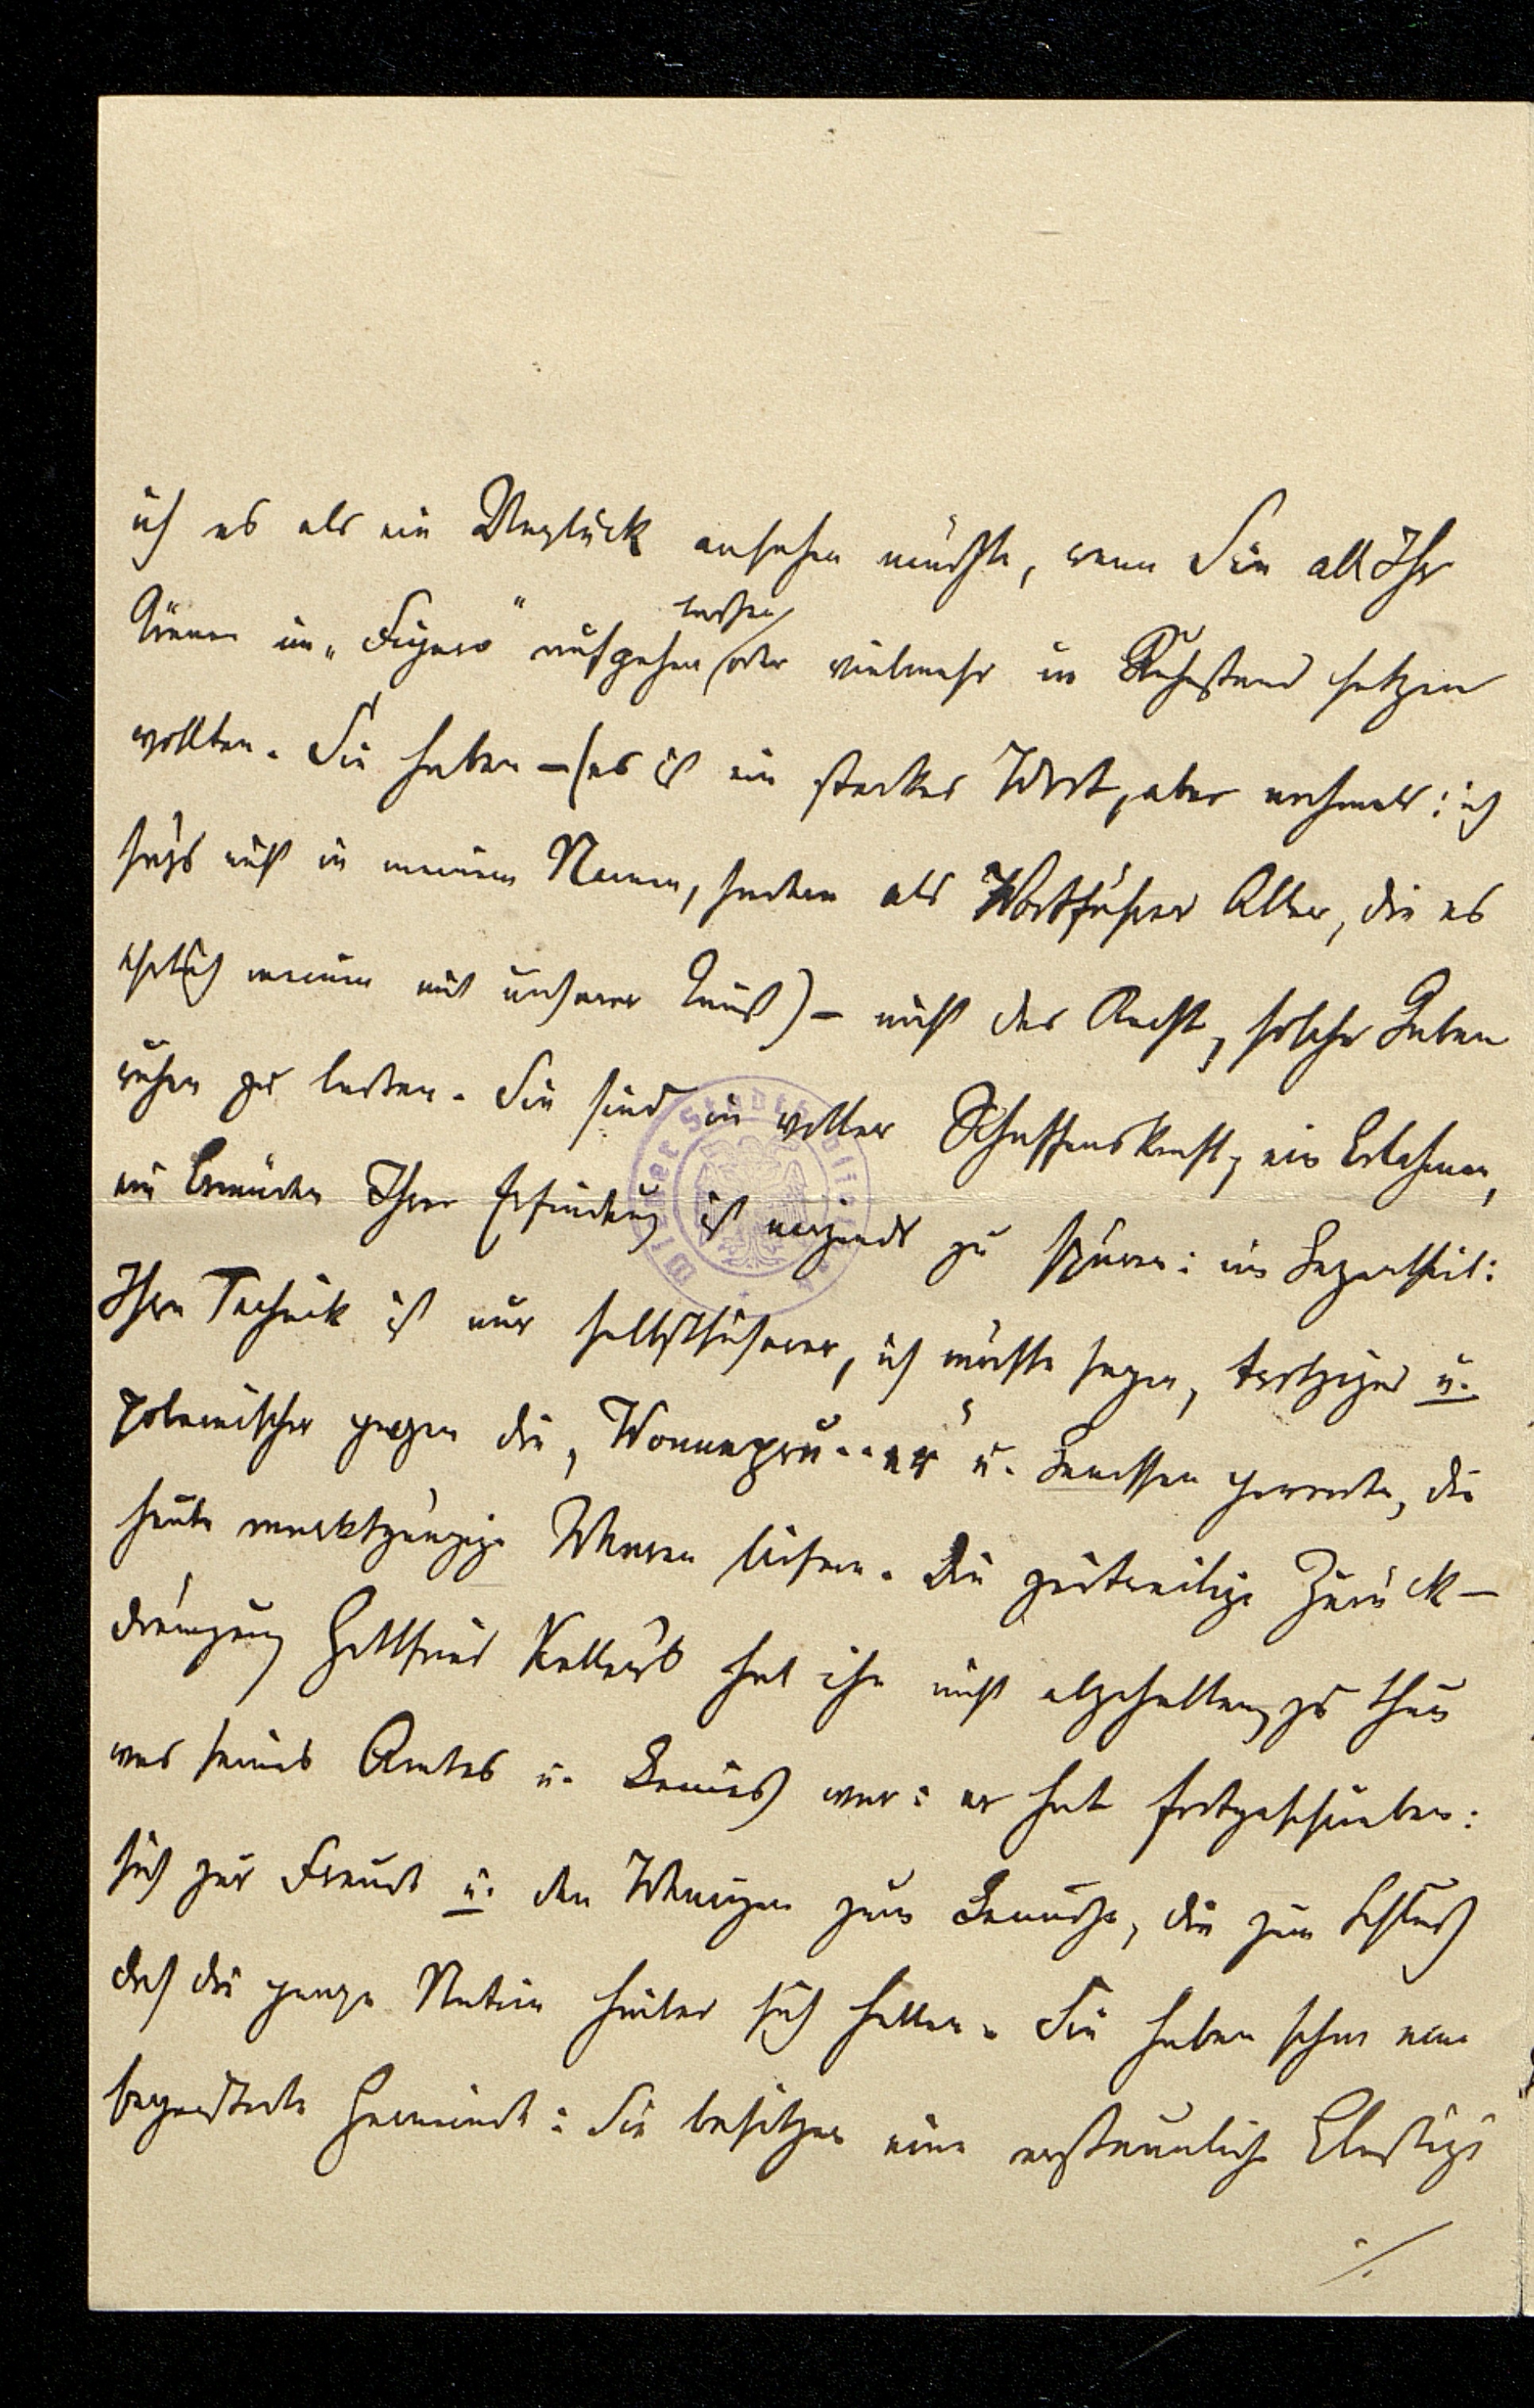 ich es als ein Unglück ansehen müßte, wenn Sie all Ihr
Können im „Figaro“ aufgehen lassen oder vielmehr in Ruhestand setzen
wollten. Sie haben – (es ist ein starkes Wort, aber nochmals: ich
sag's nicht in meinem Namen, sondern als Wortführer Aller, die es
ehrlich meinen mit unserer Kunst) – nicht das Recht, solche Gaben
ruhen zu lassen. Sie sind in voller Schaffenskraft, ein Erlahmen,
ein Ermüden Ihrer Erfindung ist nirgends zu spüren: im Gegentheil:
Ihre Technik ist nur selbstsicherer, ich möchte sagen, trotziger u.
polemischer gegen die, u. Genossen geworden, die
heute marktgängige Waaren liefern. Die zeitweilige Zurück-
drängung Gottfried Keller's hat ihn nicht abgehalten, zu thun
was seines Amtes u. Genies war: er hat fortgeschrieben:
sich zur Freude u. den Wenigen zum Genusse, die zum Schluß
doch die ganze Nation hinter sich hatten. Sie haben schon eine
begeisterte Gemeinde: Sie besitzen eine erstaunliche
./.
Wiener Stadtbibliothek